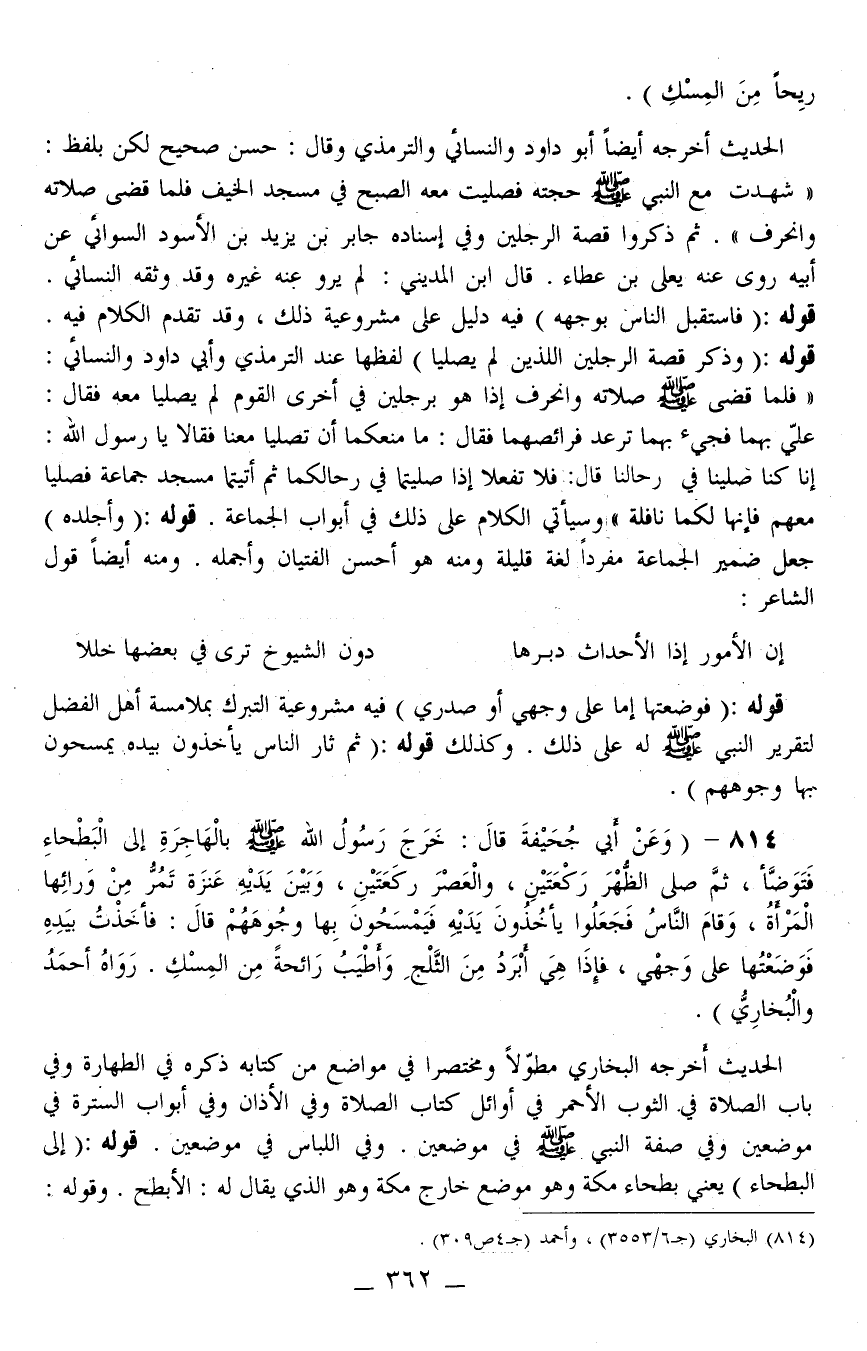 رِيحاً مِنَ المِسْكِ ) .
الحديث أخرجه أيضاً أبو داود والنسائي والترمذي وقال : حسن صحيح لكن بلفظ :
« شهدت مع النبي ﷺ حجته فصليت معه الصبح في مسجد الخيف فلما قضى صلاته
وانحرف » . ثم ذكروا قصة الرجلين وفي إسناده جابر بن يزيد بن الأسود السوائي عن
أبيه روى عنه يعلى بن عطاء . قال ابن المديني : لم يرو عنه غيره وقد وثقه النسائي .
قوله :( فاستقبل الناس بوجهه ) فيه دليل على مشروعية ذلك ، وقد تقدم الكلام فيه .
قوله :( وذكر قصة الرجلين اللذين لم يصليا ) لفظها عند الترمذي وأبي داود والنسائي :
« فلما قضى ﷺ صلاته وانحرف إذا هو برجلين في أخرى القوم لم يصليا معه فقال :
عليّ بهما فجيء بهما ترعد فرائصهما فقال : ما منعكما أن تصليا معنا فقالا يا رسول الله :
إنا كنا صلينا في رحالنا قال: فلا تفعلا إذا صليتما في رحالكما ثم أتيتما مسجد جماعة فصليا
معهم فإنها لكما نافلة » وسيأتي الكلام على ذلك في أبواب الجماعة . قوله :( وأجلده )
جعل ضمير الجماعة مفرداً لغة قليلة ومنه هو أحسن الفتيان وأجمله . ومنه أيضاً قول
الشاعر :
إن الأمور إذا الأحداث دبرها دون الشيوخ ترى في بعضها خللا
قوله :( فوضعتها إما على وجهي أو صدري ) فيه مشروعية التبرك بملامسة أهل الفضل
لتقرير النبي ﷺ له على ذلك . وكذلك قوله :( ثم ثار الناس يأخذون بيده يمسحون
بها وجوههم ) .
٨١٤ – ( وَعَنْ أَبي جُحَيْفةَ قالَ : خَرَجَ رَسُولُ الله ﷺ بالْهَاجِرَةِ إلى الْبَطْحاءِ
فَتَوَضَّأ ، ثمَّ صلى الظُّهْرَ رَكْعَتَيْنِ ، والْعَصْرَ ركعَتَيْنِ ، وَبَيْنَ يَدَيْهِ عَنزَة تَمُرُّ مِنْ وَرائِها
الْمَرْأَةُ ، وَقامَ النَّاسُ فَجَعَلُوا يأخُذُونَ يَدَيْهِ فَيَمْسَحُونَ بها وجُوهَهُمْ قالَ : فأخَذْتُ بيَدِهِ
فَوَضَعْتُها على وَجهْي ، فإذَا هِيَ أَبْرَدُ مِنَ الثَّلْجِ وَأطْيَبُ رَائحةً مِن المِسْكِ . رَوَاهُ أحمَدُ
والْبُخارِيُّ ) .
الحديث أخرجه البخاري مطوّلاً ومختصرا في مواضع من كتابه ذكره في الطهارة وفي
باب الصلاة في الثوب الأحمر في أوائل كتاب الصلاة وفي الأذان وفي أبواب السترة في
موضعين وفي صفة النبي ﷺ في موضعين . وفي اللباس في موضعين . قوله :( إلى
البطحاء ) يعني بطحاء مكة وهو موضع خارج مكة وهو الذي يقال له : الأبطح . وقوله :
(٨١٤) البخاري (جـ٣٥٥٣/٦) ، وأحمد (جـ٤ص٣٠٩) .
_ ٣٦٢ _